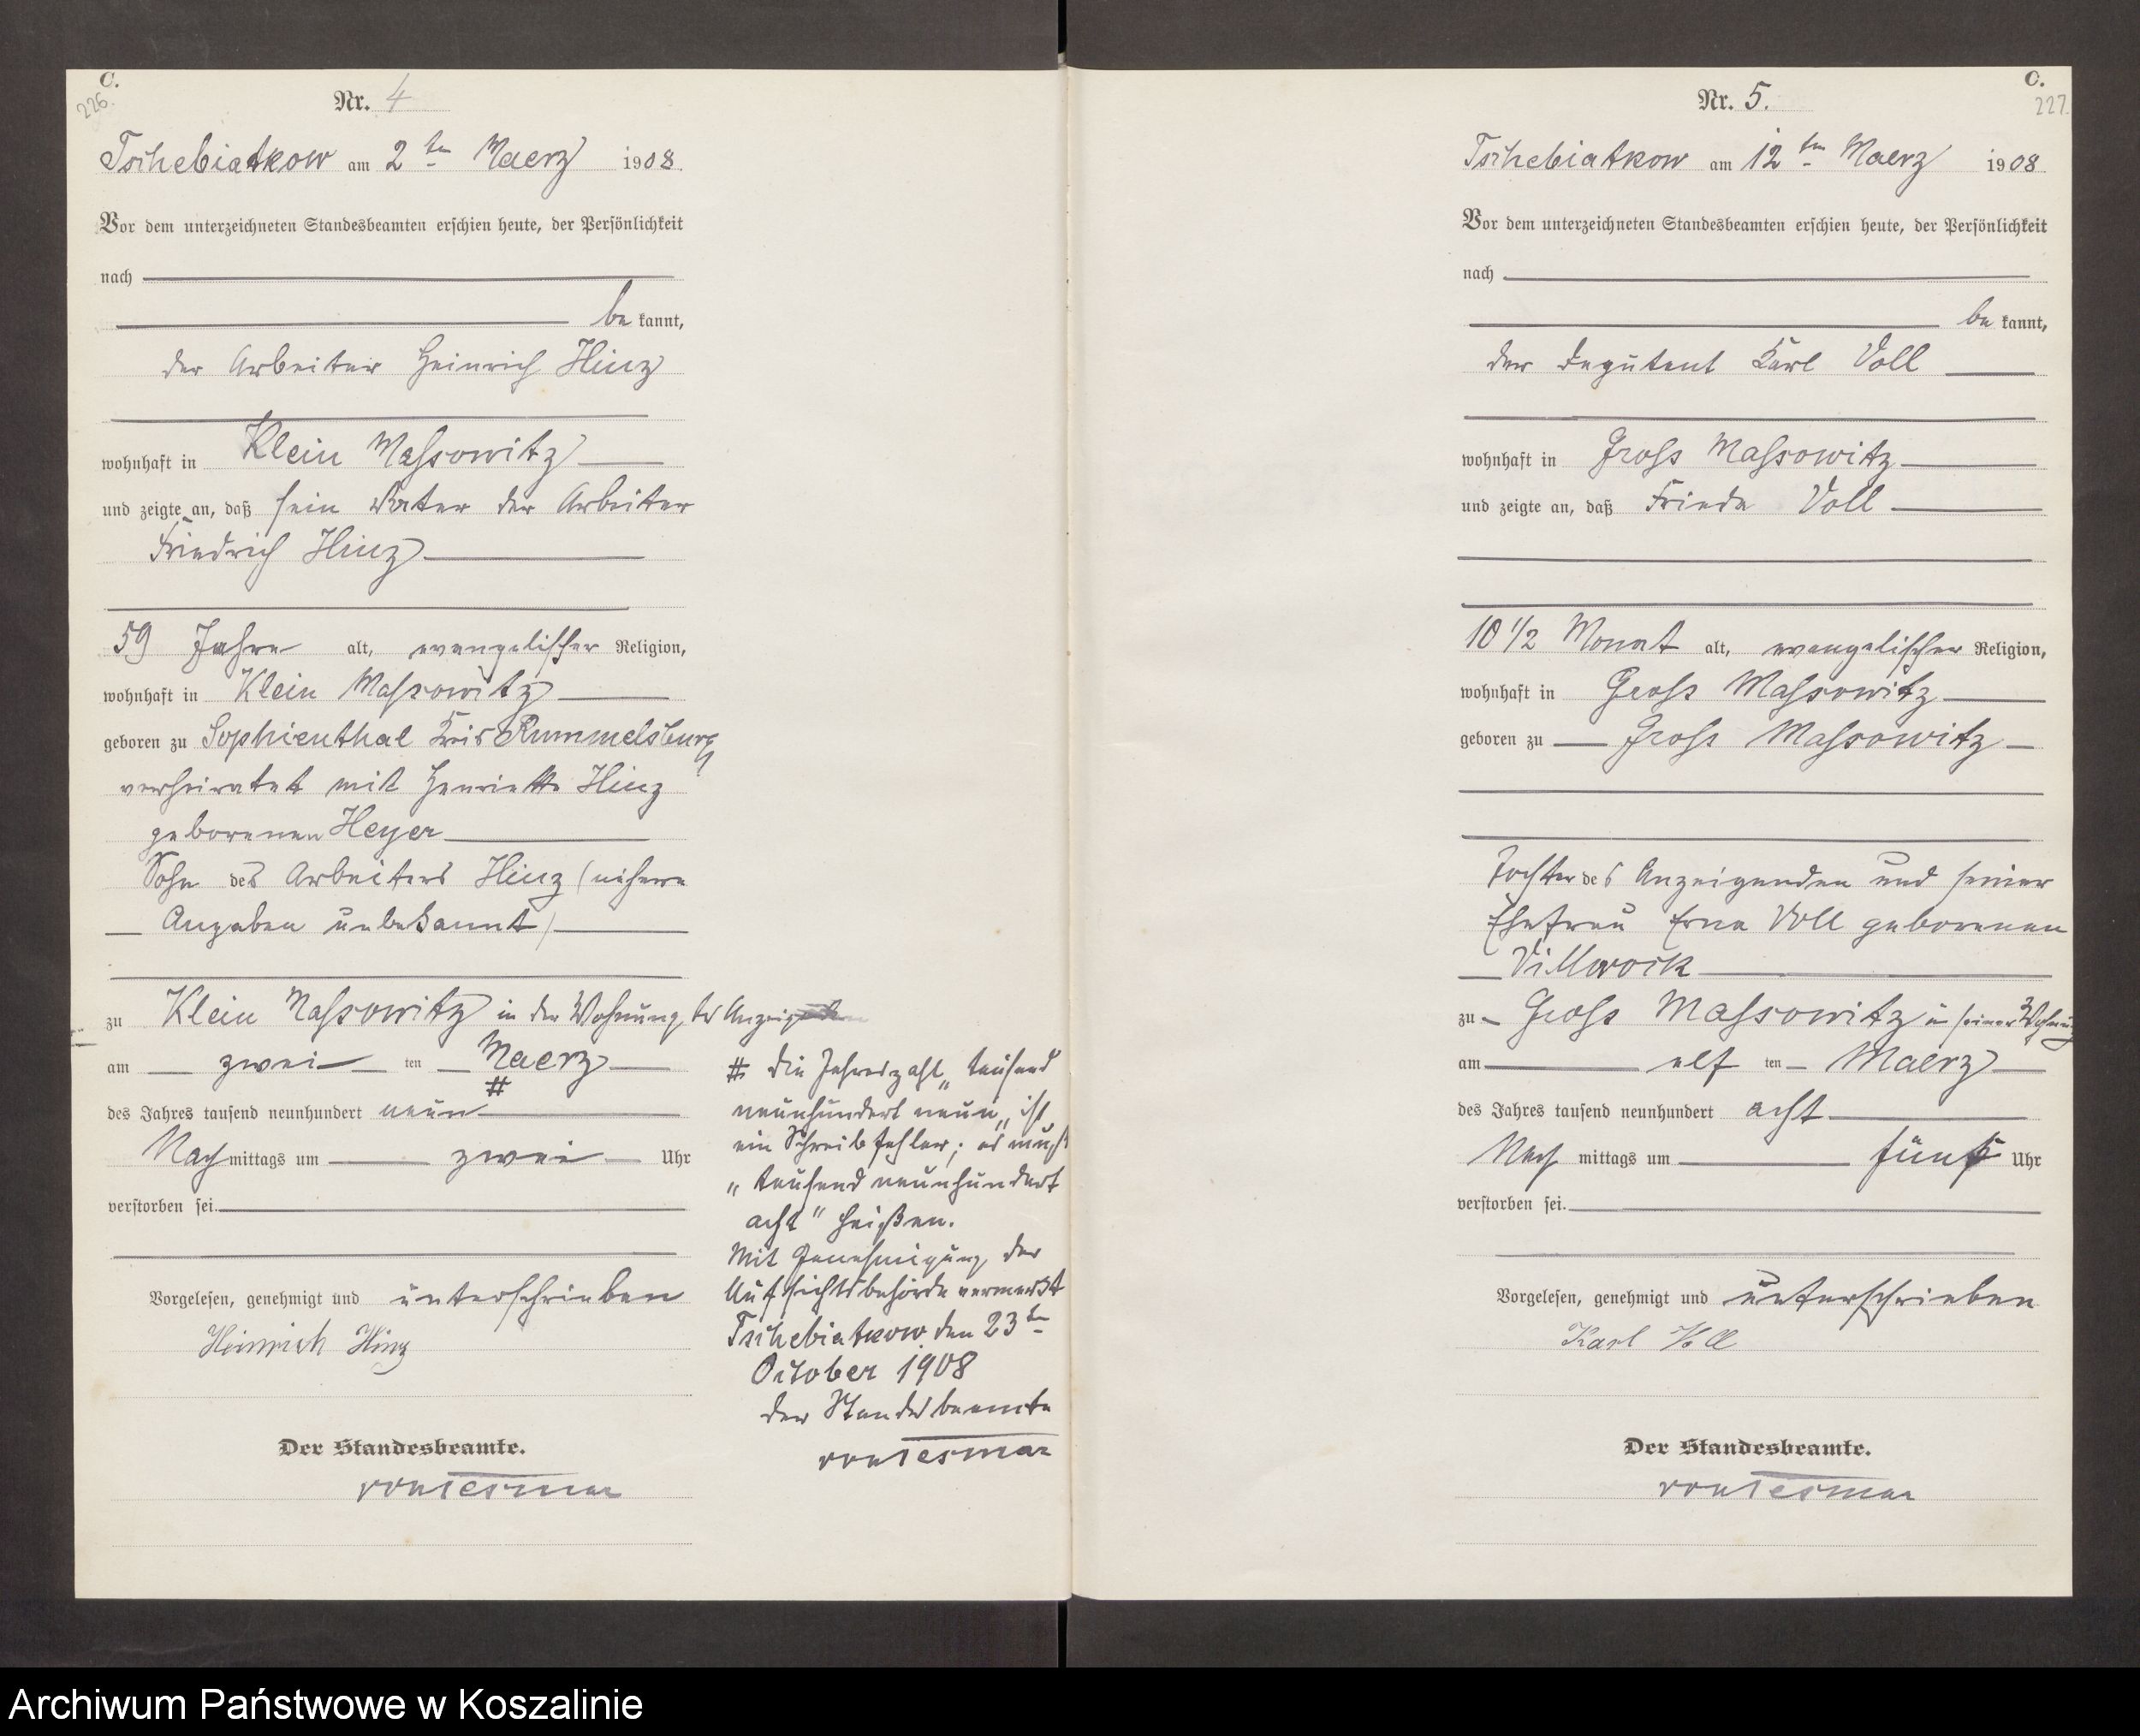 C.
226.
Nr. 4
Tschebiatkow am 2ten Maerz 1908.
Vor dem unterzeichneten Standesbeamten erschien heute, der Persönlichkeit
nach
be kannt,
der Arbeiter Heinrich Hinz
wohnhaft in Klein Massowitz
und zeigte an, daß sein Vater der Arbeiter
Friedrich Hinz
59 Jahre alt, evangelischer Religion,
wohnhaft in Klein Massowitz
geboren zu Sophienthal Kreis Rummelsburg
verheiratet mit Henriette Hinz
geborenen Heyer
Sohn des Arbeiters Hinz (nähere
Angaben unbekannt)
zu Klein Massowitz in der Wohnung des
am zwei ten Maerz
#
des Jahres tausend neunhundert neun
Nach mittags um zwei Uhr
verstorben sei.
Vorgelesen, genehmigt und unterschrieben
Heinrich Hinz
Der Standesbeamte.
von Tesmar
# Die Jahreszahl „tausend
neunhundert neun„ ist
ein Schreibfehler; es muß
„tausend neunhundert
acht" heißen.
Mit Genehmigung der
Aufsichtsbehörde vermerkt
Tschebiatkow den 23ten
October 1908
Der Standesbeamte
von Tesmar
C.
227.
Nr. 5.
Tschebiatkow am 12ten Maerz 1908
Vor dem unterzeichneten Standesbeamten erschien heute, der Persönlichkeit
nach
be kannt,
der Deputant Karl Voll
wohnhaft in Gross Massowitz
und zeigte an, daß Frieda Voll
10 1/2 Monat alt, evangelischer Religion,
wohnhaft in Gross Massowitz
geboren zu Gross Massowitz
Tochter des Anzeigenden und seiner
Ehefrau Erna Voll geborenen
Villwock
zu Gross Massowitz in seiner Wohnung
am elf ten Maerz
des Jahres tausend neunhundert acht
Nach mittags um fünf Uhr
verstorben sei.
Vorgelesen, genehmigt und unterschrieben
Karl Voll
Der Standesbeamte.
von Tesmar
Archiwum Państwowe w Koszalinie